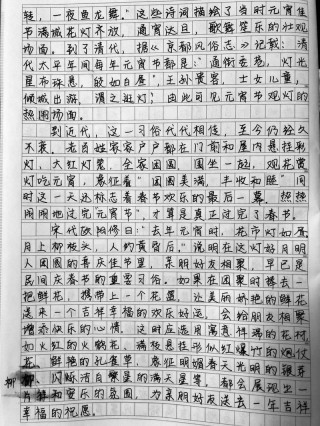 转，一夜鱼龙舞。"这些诗词描绘了当时元宵佳
节满城花灯不放，通宵达旦，歌舞笙乐的壮观
场面。到了清代，据《京都风俗志》记载：清
代太平年间每年元宵节都是："通衢委巷，灯光
星布珠悬，皎如白昼"，王孙贵客，士女儿童，
倾城出游，谓之逛灯；由此可见元宵节观灯的
热闹场面。
到近代，这一习俗代代相传，至今仍经久
不衰。老百姓家家户户都在门前和屋内悬挂彩
灯、大红灯笼，全家团圆，围坐一起，观花赏
灯吃元宵，意征着"团圆美满，丰收和睦"同
时这一天还标志着春节欢乐的最后一幕，热热
闹闹地过完元宵节"，才算是真正过完了春节。
宋代欧阳修曰："去年元宵时，花市灯如昼
月上柳梢头，人约黄昏后。"说明在这灯好月明
人团圆的喜庆佳节里，亲朋好友相聚，早已是
民间庆春节的重要习俗。如果在团聚时捧去一
把鲜花，携带上一个花篮，让美丽娇艳的鲜花
送来一个吉祥幸福的欢乐好运，会给朋友相聚
增添快乐的心情。这时应选用寓意祥瑞的花材，
如火红的火鹤花、满枝悬挂形似红爆竹的炮仗
花、鲜艳的孔雀草、意征明媚春天光明的银芽
柳、闪烁洁白繁星的满天星等，都会展现出一
片静和安乐的氛围，为亲朋好友送去一年吉祥
幸福的祝愿。